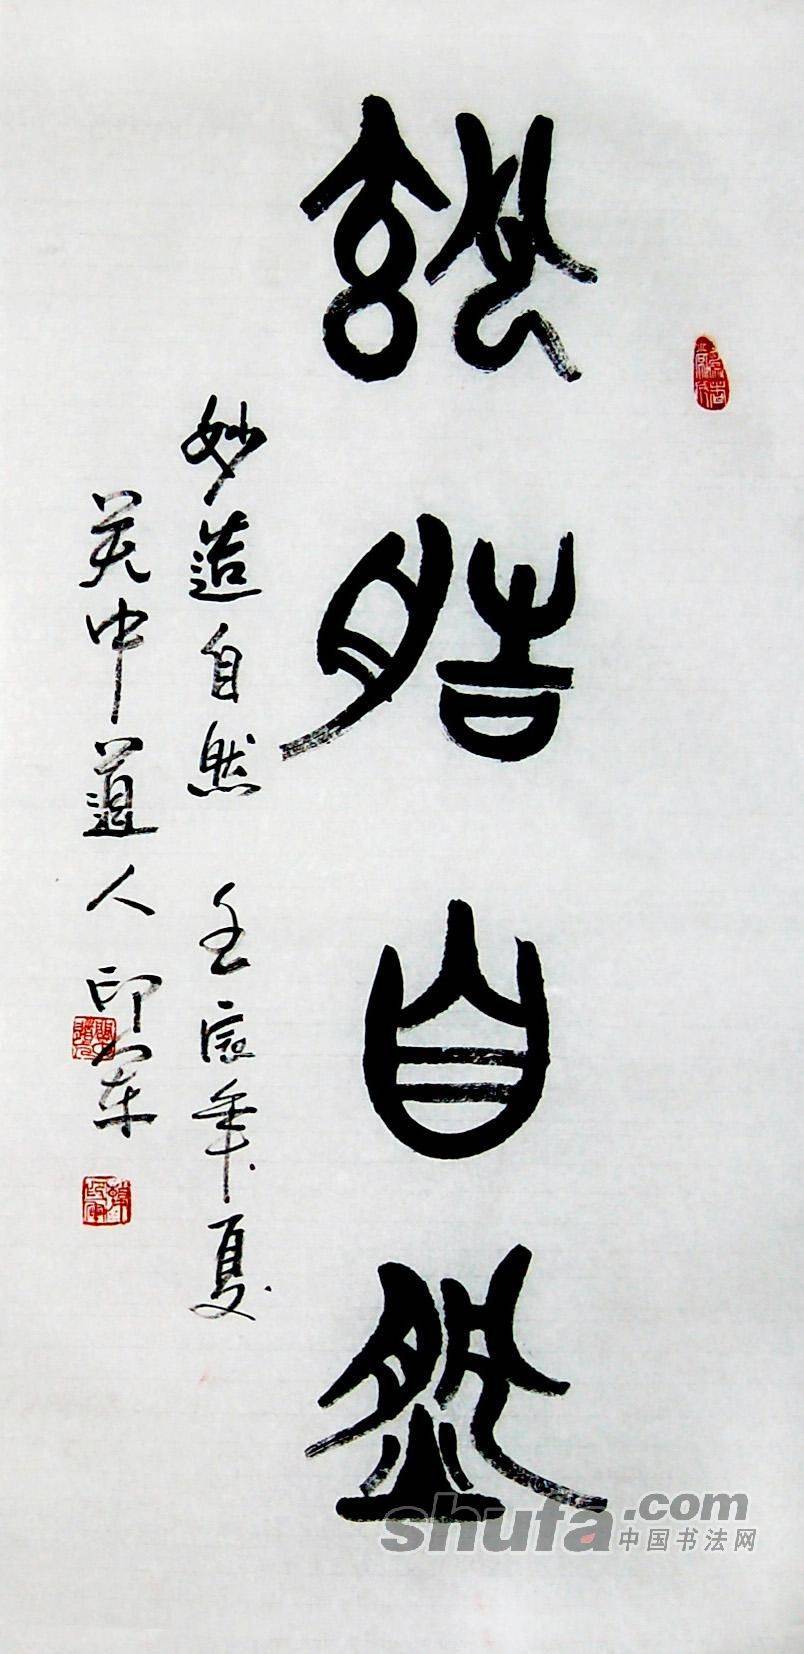 妙造自然
妙造自然 壬辰年夏
关中道人印军
shufa.com
中国书法网